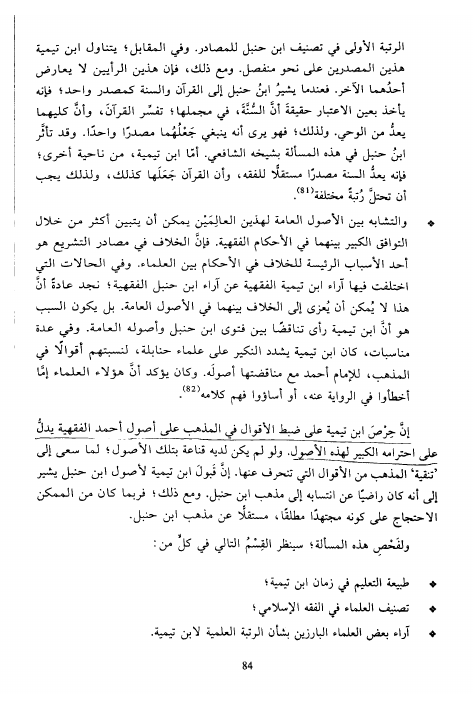 الرتبة الأولى في تصنيف ابن حنبل للمصادر. وفي المقابل؛ يتناول ابن تيمية
هذين المصدرين على نحو منفصل. ومع ذلك، فإن هذين الرأيين لا يعارض
أحدُهما الآخر. فعندما يشيرُ ابنُ حنبل إلى القرآن والسنة كمصدر واحد؛ فإنه
يأخذ بعين الاعتبار حقيقةَ أنَّ السُّنَّةَ، في مجملها؛ تفسِّر القرآنَ، وأنَّ كليهما
يعدُّ من الوحي. ولذلك؛ فهو يرى أنه ينبغي جَعْلُهُما مصدرًا واحدًا. وقد تأثَّر
ابنُ حنبل في هذه المسألة بشيخه الشافعي. أمَّا ابن تيمية، من ناحية أخرى؛
فإنه يعدُّ السنة مصدرًا مستقلًّا للفقه، وأن القرآن جَعَلَها كذلك، ولذلك يجب
أن تحتلَّ رُتبةً مختلفة(81).
❖ والتشابه بين الأصول العامة لهذين العالِمَيْن يمكن أن يتبين أكثر من خلال
التوافق الكبير بينهما في الأحكام الفقهية. فإنَّ الخلاف في مصادر التشريع هو
أحد الأسباب الرئيسة للخلاف في الأحكام بين العلماء. وفي الحالات التي
اختلفت فيها آراء ابن تيمية الفقهية عن آراء ابن حنبل الفقهية؛ نجد عادةً أنَّ
هذا لا يُمكن أن يُعزى إلى الخلاف بينهما في الأصول العامة. بل يكون السبب
هو أنَّ ابن تيمية رأى تناقضًا بين فتوى ابن حنبل وأصوله العامة. وفي عدة
مناسبات، كان ابن تيمية يشدد النكير على علماء حنابلة، لنسبتهم أقوالًا في
المذهب، للإمام أحمد مع مناقضتها أصولَه. وكان يؤكد أنَّ هؤلاء العلماء إمَّا
أخطأوا في الرواية عنه، أو أساؤوا فهم كلامه(82).
إنَّ حِرْصَ ابن تيمية على ضبط الأقوال في المذهب على أصول أحمد الفقهية يدلُّ
على احترامه الكبير لهذه الأصول. ولو لم يكن لديه قناعة بتلك الأصول؛ لما سعى إلى
'تنقية' المذهب من الأقوال التي تنحرف عنها. إنَّ قبولَ ابن تيمية لأصول ابن حنبل يشير
إلى أنه كان راضيًا عن انتسابه إلى مذهب ابن حنبل. ومع ذلك؛ فربما كان من الممكن
الاحتجاج على كونه مجتهدًا مطلقًا، مستقلًّا عن مذهب ابن حنبل.
ولفَحْصِ هذه المسألة؛ سينظر القِسْمُ التالي في كلٍّ من:
❖ طبيعة التعليم في زمان ابن تيمية؛
❖ تصنيف العلماء في الفقه الإسلامي؛
❖ آراء بعض العلماء البارزين بشأن الرتبة العلمية لابن تيمية.
84